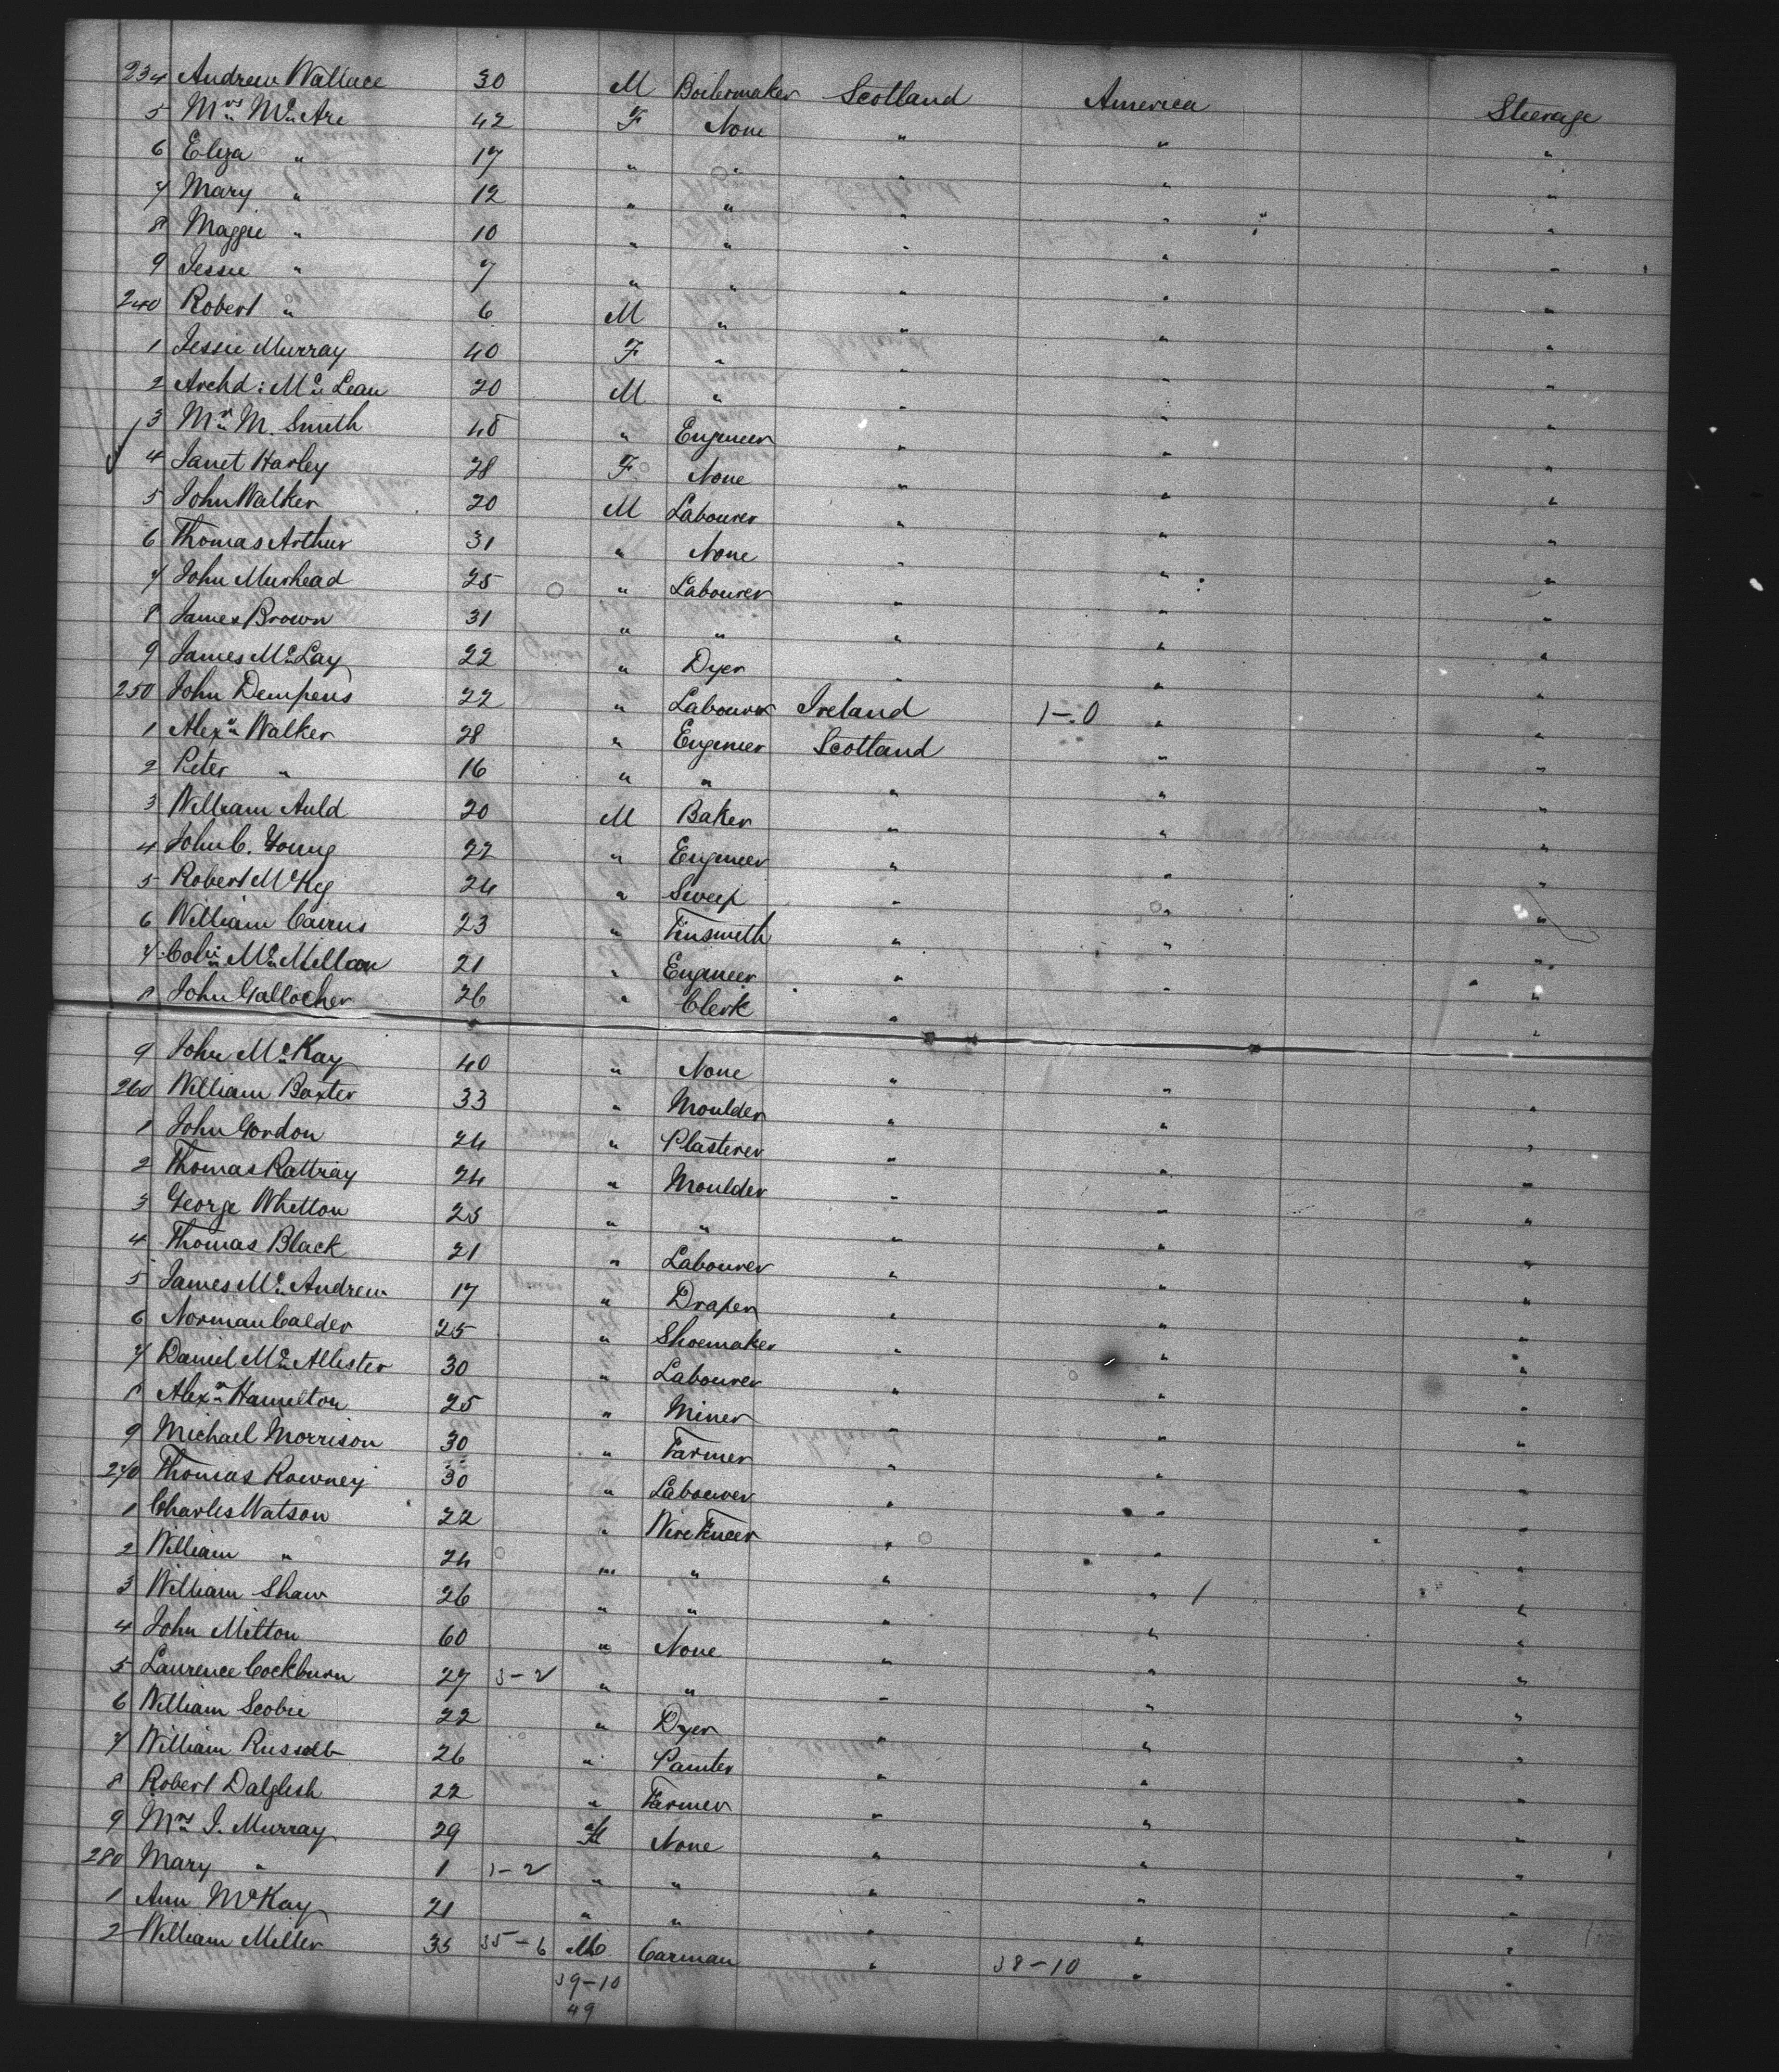 234 Andrew Wallace 30 M Boilermaker Scotland America Steerage
5 Mrs McAre 42 F None " " "
6 Eliza " 17 " " " " "
7 Mary " 12 " " " " "
8 Maggie " 10 " " " " "
9 Jessie " 7 " " " " "
240 Robert " 6 M " " " "
1 Jessie Murray 40 F " " " "
2 Archd: McLean 20 M " " " "
3 Mr M. Smith 45 " Engineer " " "
4 Janet Harley 28 F None " " "
5 John Walker 20 M Labourer " " "
6 Thomas Arthur 31 " None " " "
7 John Muirhead 25 " Labourer " " "
8 James Brown 31 " " " " "
9 James McLay 22 " Dyer " " "
250 John Dempens 22 " Labourer Ireland 1-0 " "
1 Alexr Walker 28 " Engineer Scotland " "
2 Peter " 16 " " " " "
3 William Auld 20 M Baker " " "
4 John C. Young 22 " Engineer " " "
5 Robert McKey 24 " Sweep " " "
6 William Cairns 23 " Tinsmith " " "
7 Colin McMillan 21 " Engineer " " "
8 John Gallocher 26 " Clerk " "
9 John McKay 40 " None " " "
260 William Baxter 33 " Moulder " " "
1 John Gordon 24 " Plasterer " " "
2 Thomas Rattray 24 " Moulder " " "
3 George Whitton 25 " " " " "
4 Thomas Black 21 " Labourer " " "
5 James McAndrew 17 " Draper " " "
6 Norman Calder 25 " Shoemaker " " "
7 Daniel McAllister 30 " Labourer " " "
8 Alexr Hamilton 25 " Miner " " "
9 Michael Morrison 30 " Farmer " " "
270 Thomas Rowney 30 " Labourer " " "
1 Charles Watson 22 " " " "
2 William " 24 " " " " "
3 William Shaw 26 " " " " "
4 John Mitton 60 " None " " "
5 Laurence Cockburn 27 3-2 " " " " "
6 William Scobie 22 " Dyer " " "
7 William Russell 26 " Painter " " "
8 Robert Dalglish 22 " Farmer " " "
9 Mrs J. Murray 29 F None " " "
280 Mary " 1 1-2 " " " " "
1 Ann McKay 21 " " " " "
2 William Miller 35 35-6 M Carman " 38-10 " "
39-10
49